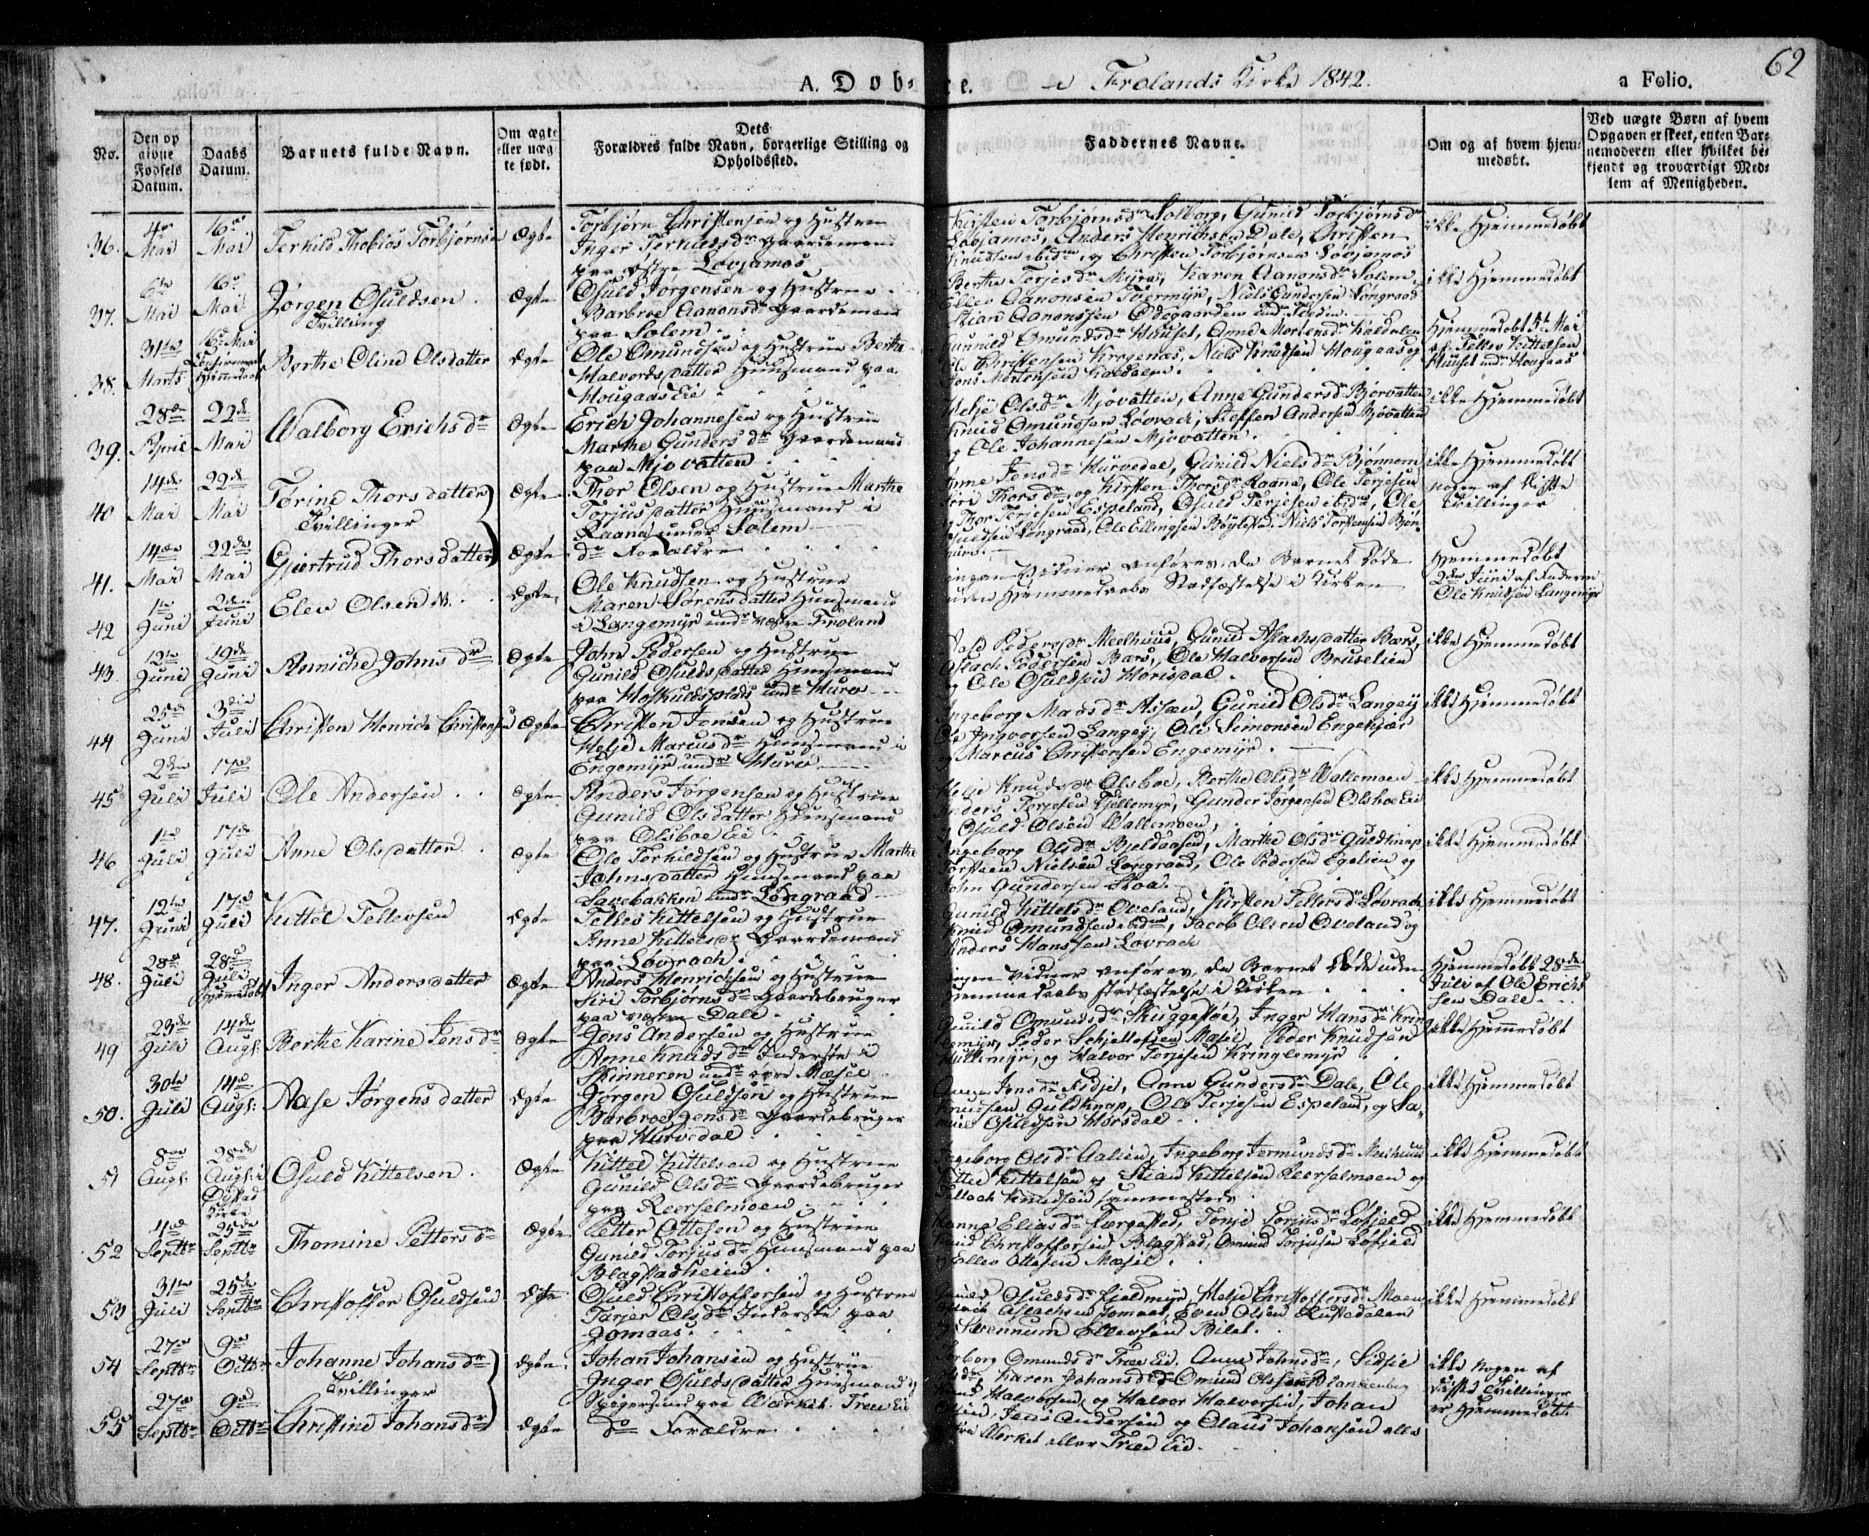 62
A. Døbte. i Frolands Kirke 1842. a Folio.
No.
Den opgivne Fødsels Datum.
Daabs Datum.
Barnets fulde Navn.
Om ægte eller uægte født.
Dets Forældres fulde Navn, borgerlige Stilling og Opholdssted.
Faddernes Navne.
Om og af hvem hjemmedøbt.
Ved uægte Børn af hvem Opgaven er skeet, enten Barnemoderen eller hvilket bekjendt og troværdigt Medlem af Menigheden.
36. 4de Mai 16de Mai Terkild Thobias Torbjørnsen Ægte
Torbjørn Christensen og Hustrue
Inger Terkilsdr Gaardemand
paa østre Lovjamos
Kirsten Torbjørnsdr Solborg, Gunild Torbjørnsdr
Lovjamos, Anders Henrichsen Dale, Christen
Knudsen ibid, og Christen Torbjørnsen Lovjamos
ikke Hjemmedøbt
37. 6te Mai 16de Mai Jørgen Osuldsen Tvilling Ægte
Osuld Jørgensen og Hustrue
Barbroe Aanonsdr Gaardemand
paa Solem
Berthe Terjesdr Mjøvej, Karen Aanonsdr Solem
Ellev Aanonsen Tvermyr, Niels Gundersen Longraad
Stian Aanonsen Ødegaarden
ikke Hjemmedøbt
38. 31te Marts 16de Mai Hjemmedaab Berthe Oline Olsdatter Ægte
Ole Omundsen og Hustrue Berthe
Halvordsdatter Huusmand paa
Hougaas Eie
Gunnild Omundsdr Huuset, Anne Mortensdr Kaldalen
Ole Christensen Krogenæs, Niels Knudsen Hougaas og
Jens Mortensen Kaldalen
Hjemmedøbt 5te Mai
af Tellev Kittelsen
Huuset undr Hougaas
39. 28de April 22de Mai Walborg Erichsdr Ægte
Erich Johannesen og Hustrue
Marthe Gundersdr Gaardemand
paa Mjovatten
Helje Olsdr Mjovatten, Anne Gundersdr Bjorvatten
Knud Omundsen Lovrach, Steffen Andersen Bjovatten
og Ole Johannesen Mjovatten
ikke Hjemmedøbt
40 14de Mai 22de Mai Torine Thorsdatter Tvillinger Ægte
Thor Olsen og Hustrue Marthe
Torjusdatter Huusmand i
Raana under Solem
Anne Jensdr Hurvedal, Gunild Nielsdr Bjønnem
Siri Thorsdr og Kirsten Thorsdr Raana, Ole Terjesen
og Thor Terjesen Espeland, Osuld Terjesen ibid, Ole
Osuldsen Longraad, Ole Ellingsen Bøylestad, Niels Torstensen Bjønnum
ikke Hjemmedøbt
nogen af disse
Tvillinger
41. 14de Mai 22de Mai Gjertrud Thorsdatter Ægte
do Forældre
42 1te Juni 2den Juni Elev Olsen Ægte
Ole Knudsen og Hustrue
Maren Sørensdatter Huusmand
i Langemyr undr vestre Froland
ingen Vidner anføres, da Barnet døde
uden Hjemmedaabs Stadfæstelse i Kirken
Hjemmedøbt
2den Juni af Faderen
Ole Knudsen Langemyr
43 12te Juni 19de Juni Anniche Johnsdr Ægte
John Pedersen og Hustrue
Gunild Osuldsdatter Huusmand
paa Hoskuldsplads undr Hurv
Pedersdr Meelhuus, Gunild Aslachsdatter Bærs,
Aslach Pedersen Bærs, Ole Halvorsen Bruselien
og Ole Osuldsen Horisdal
ikke Hjemmedøbt
44 25de Juni 3die Juli Christen Henrich Christensen Ægte
Christen Jensen og Hustrue
Helje Marcusdr Huusmand i
Engemyr undr Hurv
Ingeborg Madsdr Assen, Gunild Olsdr Langej
Ole Ingvorsen Langej, Ole Simonsen Engekjær
og Marcus Christensen Engemyr
ikke Hjemmedøbt
45 2den Juli 17de Juli Ole Andersen Ægte
Anders Jørgensen og Hustrue
Gunild Olsdatter Huusmand
paa Olsboe Eie
Helje Knudsdr Olsboe, Berthe Olsdr Wallemoen
Anders Terjesen Fjellemyr, Gunder Jørgensen Olsboe Eie
Osuld Olsen Wallemoen
ikke Hjemmedøbt
46 1te Juli 17de Juli Anne Olsdatter Ægte
Ole Terkildsen og Hustrue Marthe
Johnsdatter Huusmand paa
Lavebakken undr Longraad
Ingeborg Olsdr Bjeldaasen, Marthe Olsdr Guldknap
Torsteen Nielsen Longraad, Ole Pedersen Egelien og
John Gundersen Stoa
ikke Hjemmedøbt
47. 12te Juni 17de Juli Kittel Tellevsen Ægte
Tellev Kittelsen og Hustrue
Anne Kittelsdr Gaardemand
paa Lovrach
Gunild Kittelsdr Oveland, Kirsten Tellevsdr Lovrach
Knud Omundsen ibid, Jacob Olsen Oveland og
Anders Hanssen Lovrach
ikke Hjemmedøbt
48. 28de Juli 28de Juli Hjemmedøbt Inger Andersdatter Ægte
Anders Henrichsen og Hustrue
Siri Torbjørnsdr Gaardebruger
paa vestre Dale
ingen Vidner anføres, da Barnet døde uden
Hjemmedaabs Stadfæstelse i Kirken
Hjemmedøbt 28de
Juli af Ole Erichsen
Dale
49 23de Juli 14de Augs: Berthe Karine Jensdr Ægte
Jens Andersen og Hustrue
Anne Knudsdr Inderste i
Skinneren undr øvre Mæsel
Gunild Omundsdr Skuggestøe, Inger Hansdr Kringlemyr,
Peder Schjellefsen Mæsel, Peder Knudsen
Hellemyr, og Halvor Terjesen Kringlemyr
ikke Hjemmedøbt
50. 30te Juli 14de Augs: Aase Jørgensdatter Ægte
Jørgen Osuldsen og Hustrue
Barbroe Jensdr Gaardebruger
paa Hurvedal
Jensdr Lidje, Anne Gundersdr Dale, Ole
Knudsen Guldknap, Ole Terjesen Espeland, og
Osuldsen Horsdal
ikke Hjemmedøbt
51 8de Augs: 28de Augs: i Øiestad Kirke Osuld Kittelsen Ægte
Kittel Kittelsen og Hustrue
Gunild Olsdr Gaardebruger
paa Reerselmoen
Ingeborg Olsdr Aalien, Ingeborg Jermundsdr
Kittel Kittelsen og Stian Kittelsen Reerselmoen og
Tellach Knudsen sammesteds
ikke Hjemmedøbt
52 4de Septbr 25de Septbr Thomine Pettersdr Ægte
Petter Ottesen og Hustrue
Gunild Torjusdr Huusmand paa
Blagstadheien
Hanne Eliasdr Færgestad, Tonje Torjusdr Løfjeld
Knud Christoffersen Blagstad, Omund Torjusen Løfjeld
og Ellev Ottesen Mæsel
ikke Hjemmedøbt
53 31te Juli 25de Septbr Christoffer Osuldsen Ægte
Osuld Christoffersen og Hustrue
Tarjer Olsdr Inderste paa
Jomaas
Gunild Osuldsdr Fjeldmyr, Helje Christoffersdr Moen
Aslachsen Jomaas, Even Olsen Lustedalen
og Svennum Ellevsen Bilet
ikke Hjemmedøbt
54 27de Septbr 9de Octbr Johanne Johansdr Tvillinger Ægte
Johan Johansen og Hustrue
Inger Osuldsdatter Huusmand og
paa Værket Træe Eie
Torborg Omundsdr Træe Eie, Anne Johnsdr, Sidsie
Karen Johansdr Omund Olsen Blankenberg
Knud Halvorsen og Halvor Halvorsen, Johan
Olsen, Jens Andersen og Olaus Johansen alle
fra Værket eller Træe Eie
ikke nogen af
disse Tvillinger
er Hjemmedøbt
55 27de Septbr 9de Octbr Christine Johansdr Ægte
do Forældre